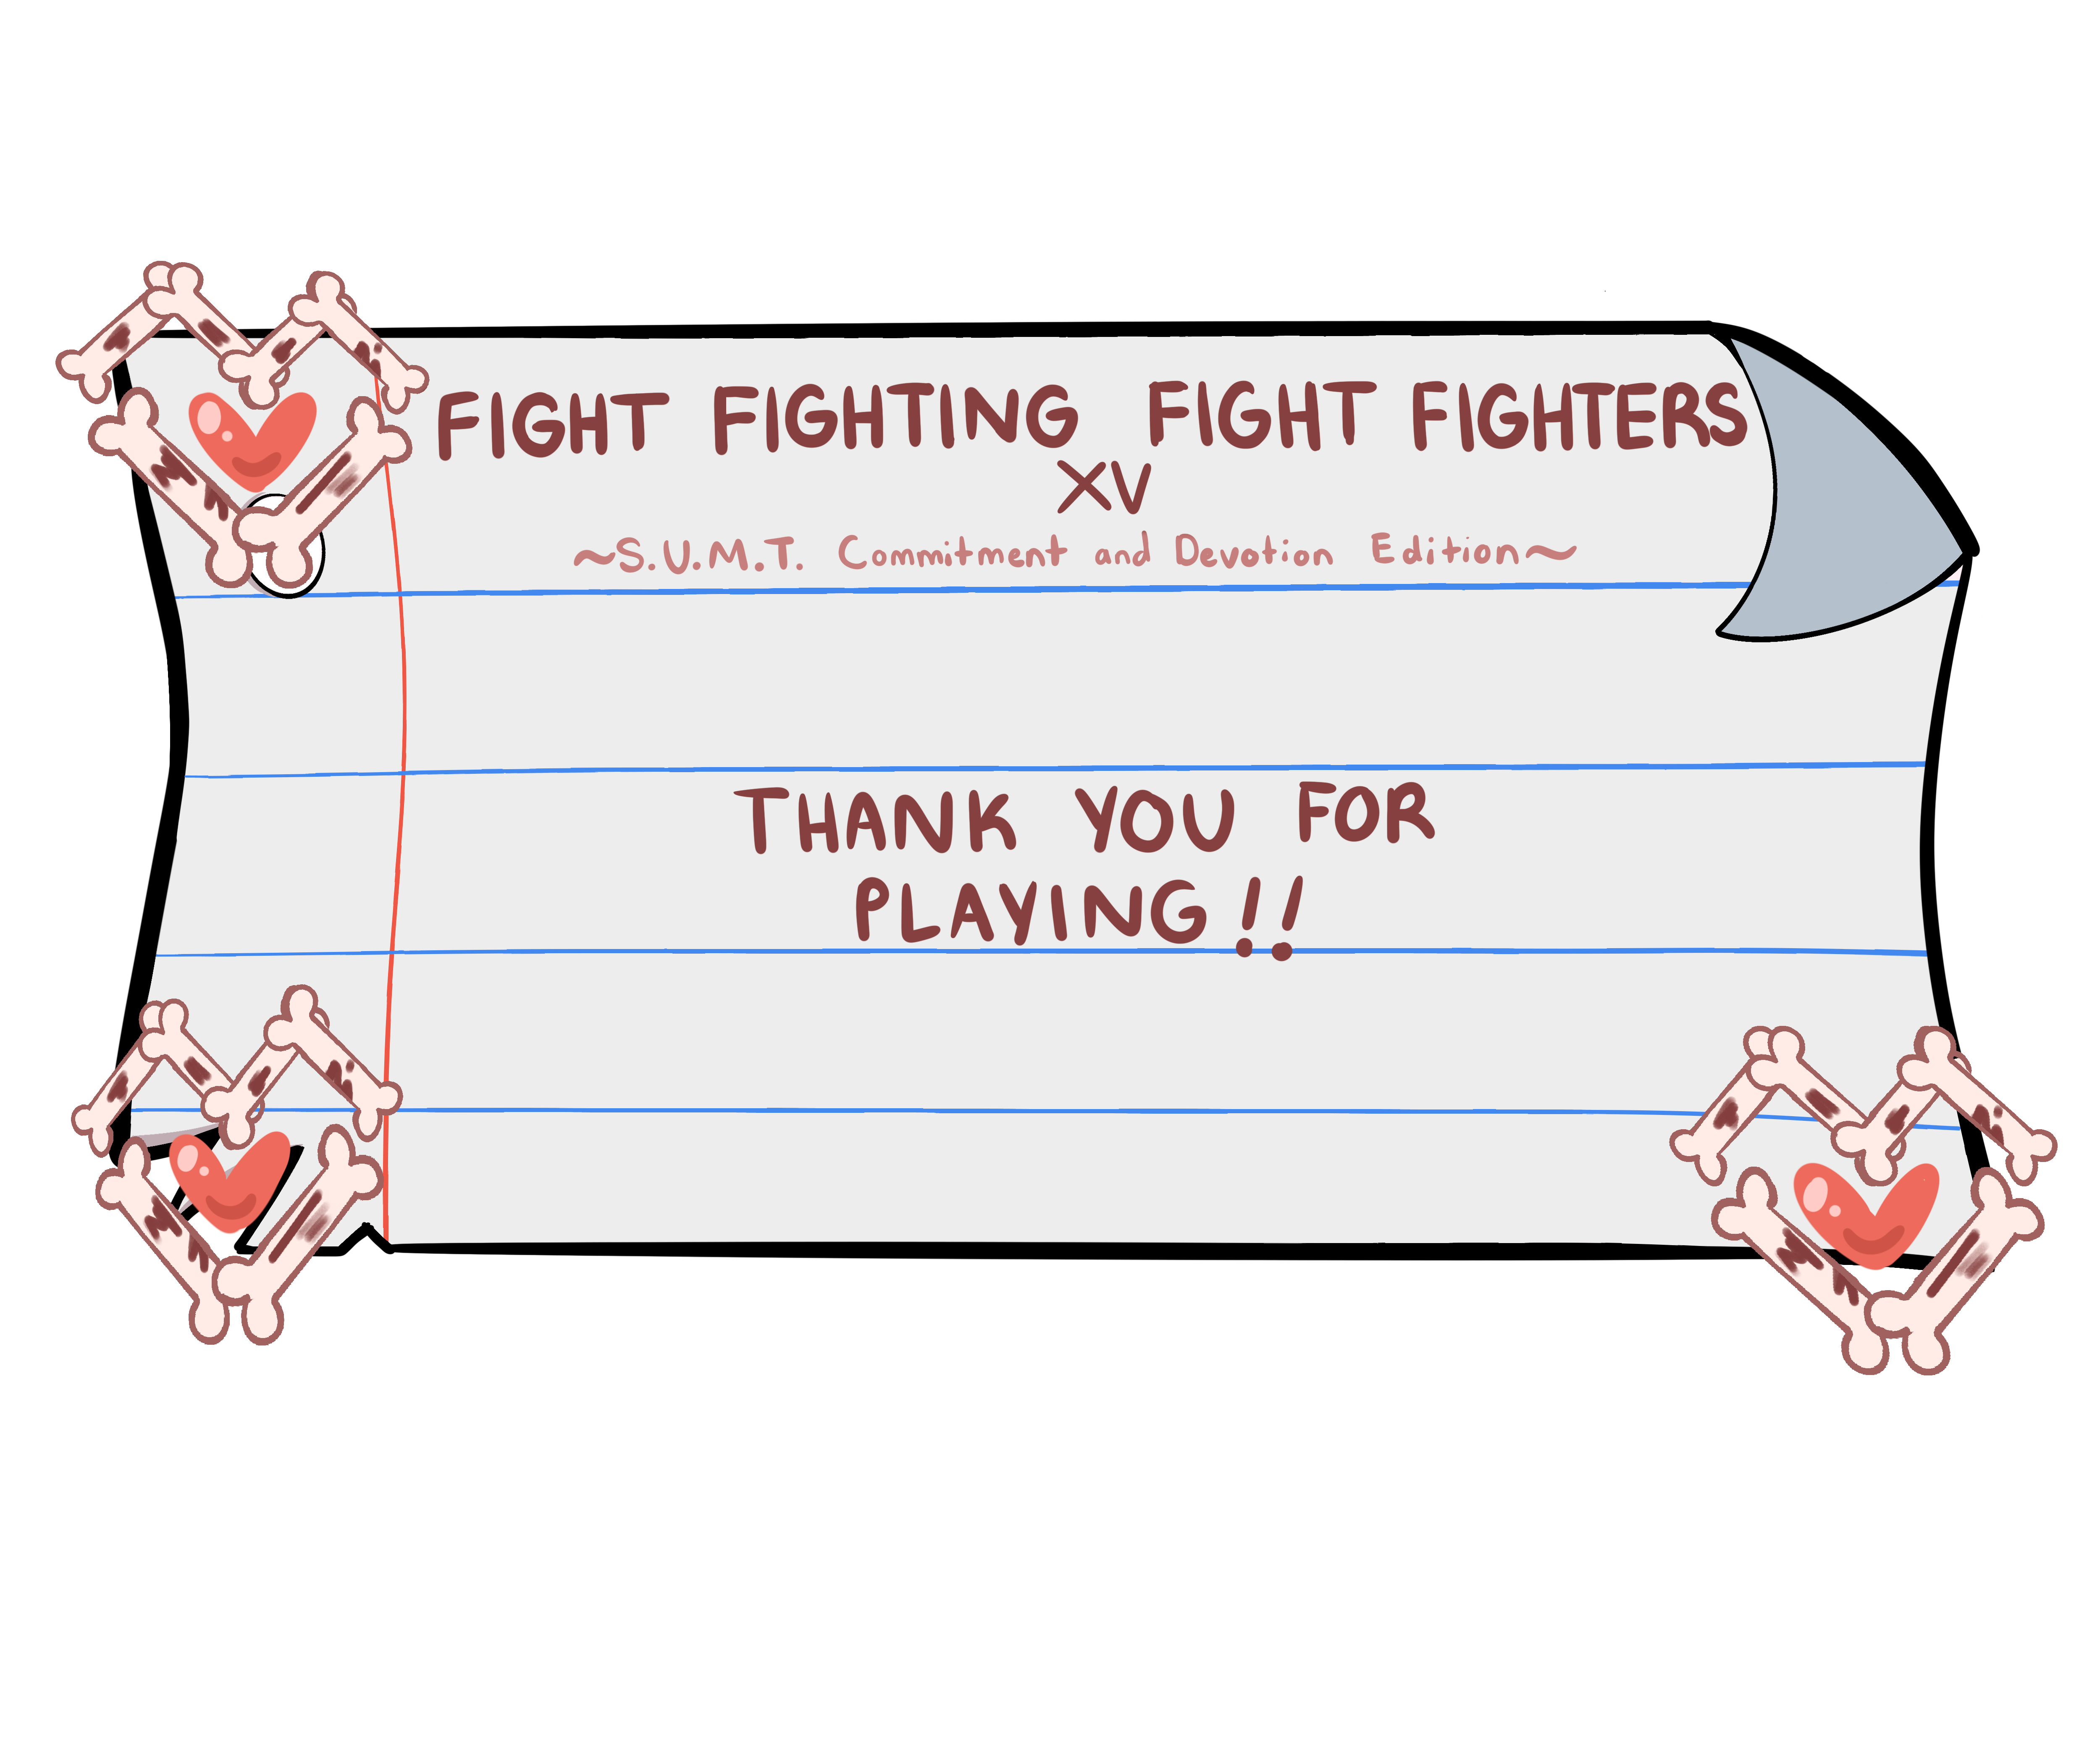 FIGHT FIGHTING FIGHT FIGHTERS
XV
~S.U.M.T. Commitment and Devotion Edition~
THANK YOU FOR
PLAYING!!